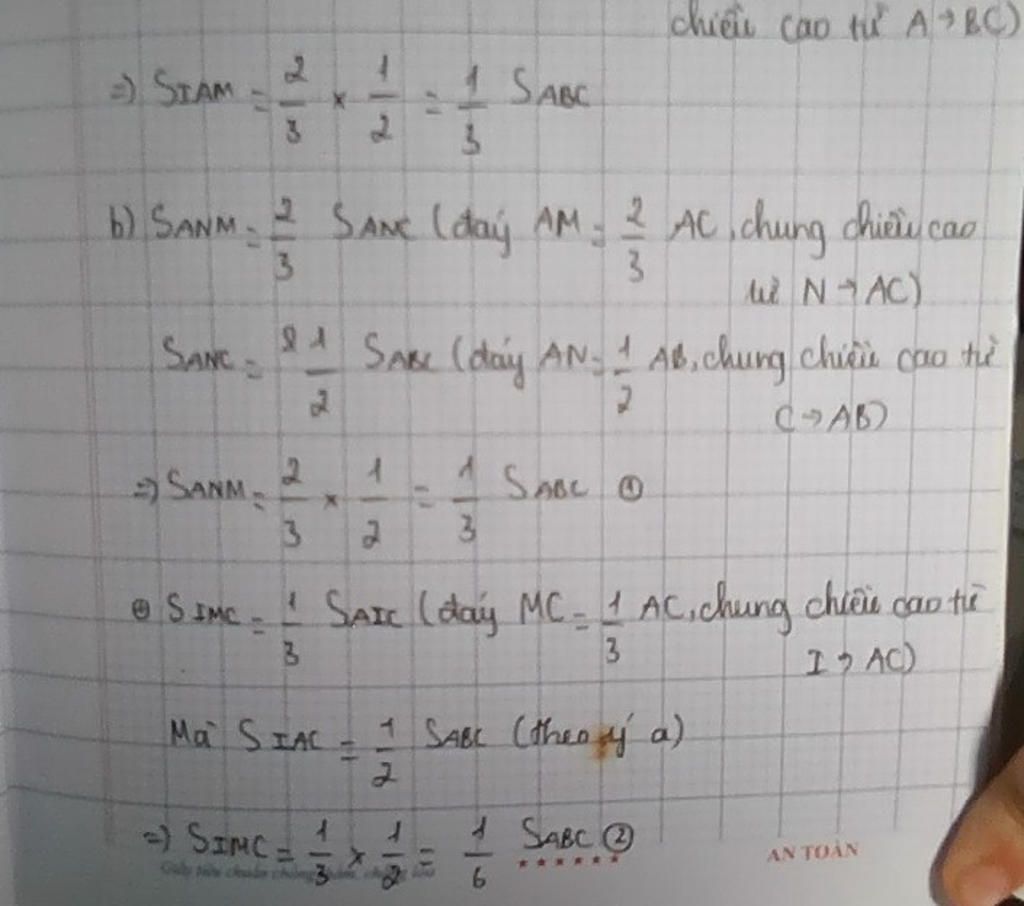 chiều cao từ A → BC)
=) SIAM = 2/3 × 1/2 = 1/3 SABC
b) SANM = 2/3 SANC (đáy AM = 2/3 AC, chung chiều cao
từ N → AC)
SANC = 1/2 SABC (đáy AN = 1/2 AB, chung chiều cao từ
C → AB)
=) SANM = 2/3 × 1/2 = 1/3 SABC ①
⊕ SIMC = 1/3 SAIC (đáy MC = 1/3 AC, chung chiều cao từ
I → AC)
Mà SIAC = 1/2 SABC (theo ý a)
=) SIMC = 1/3 × 1/2 = 1/6 SABC ②
AN TOÀN